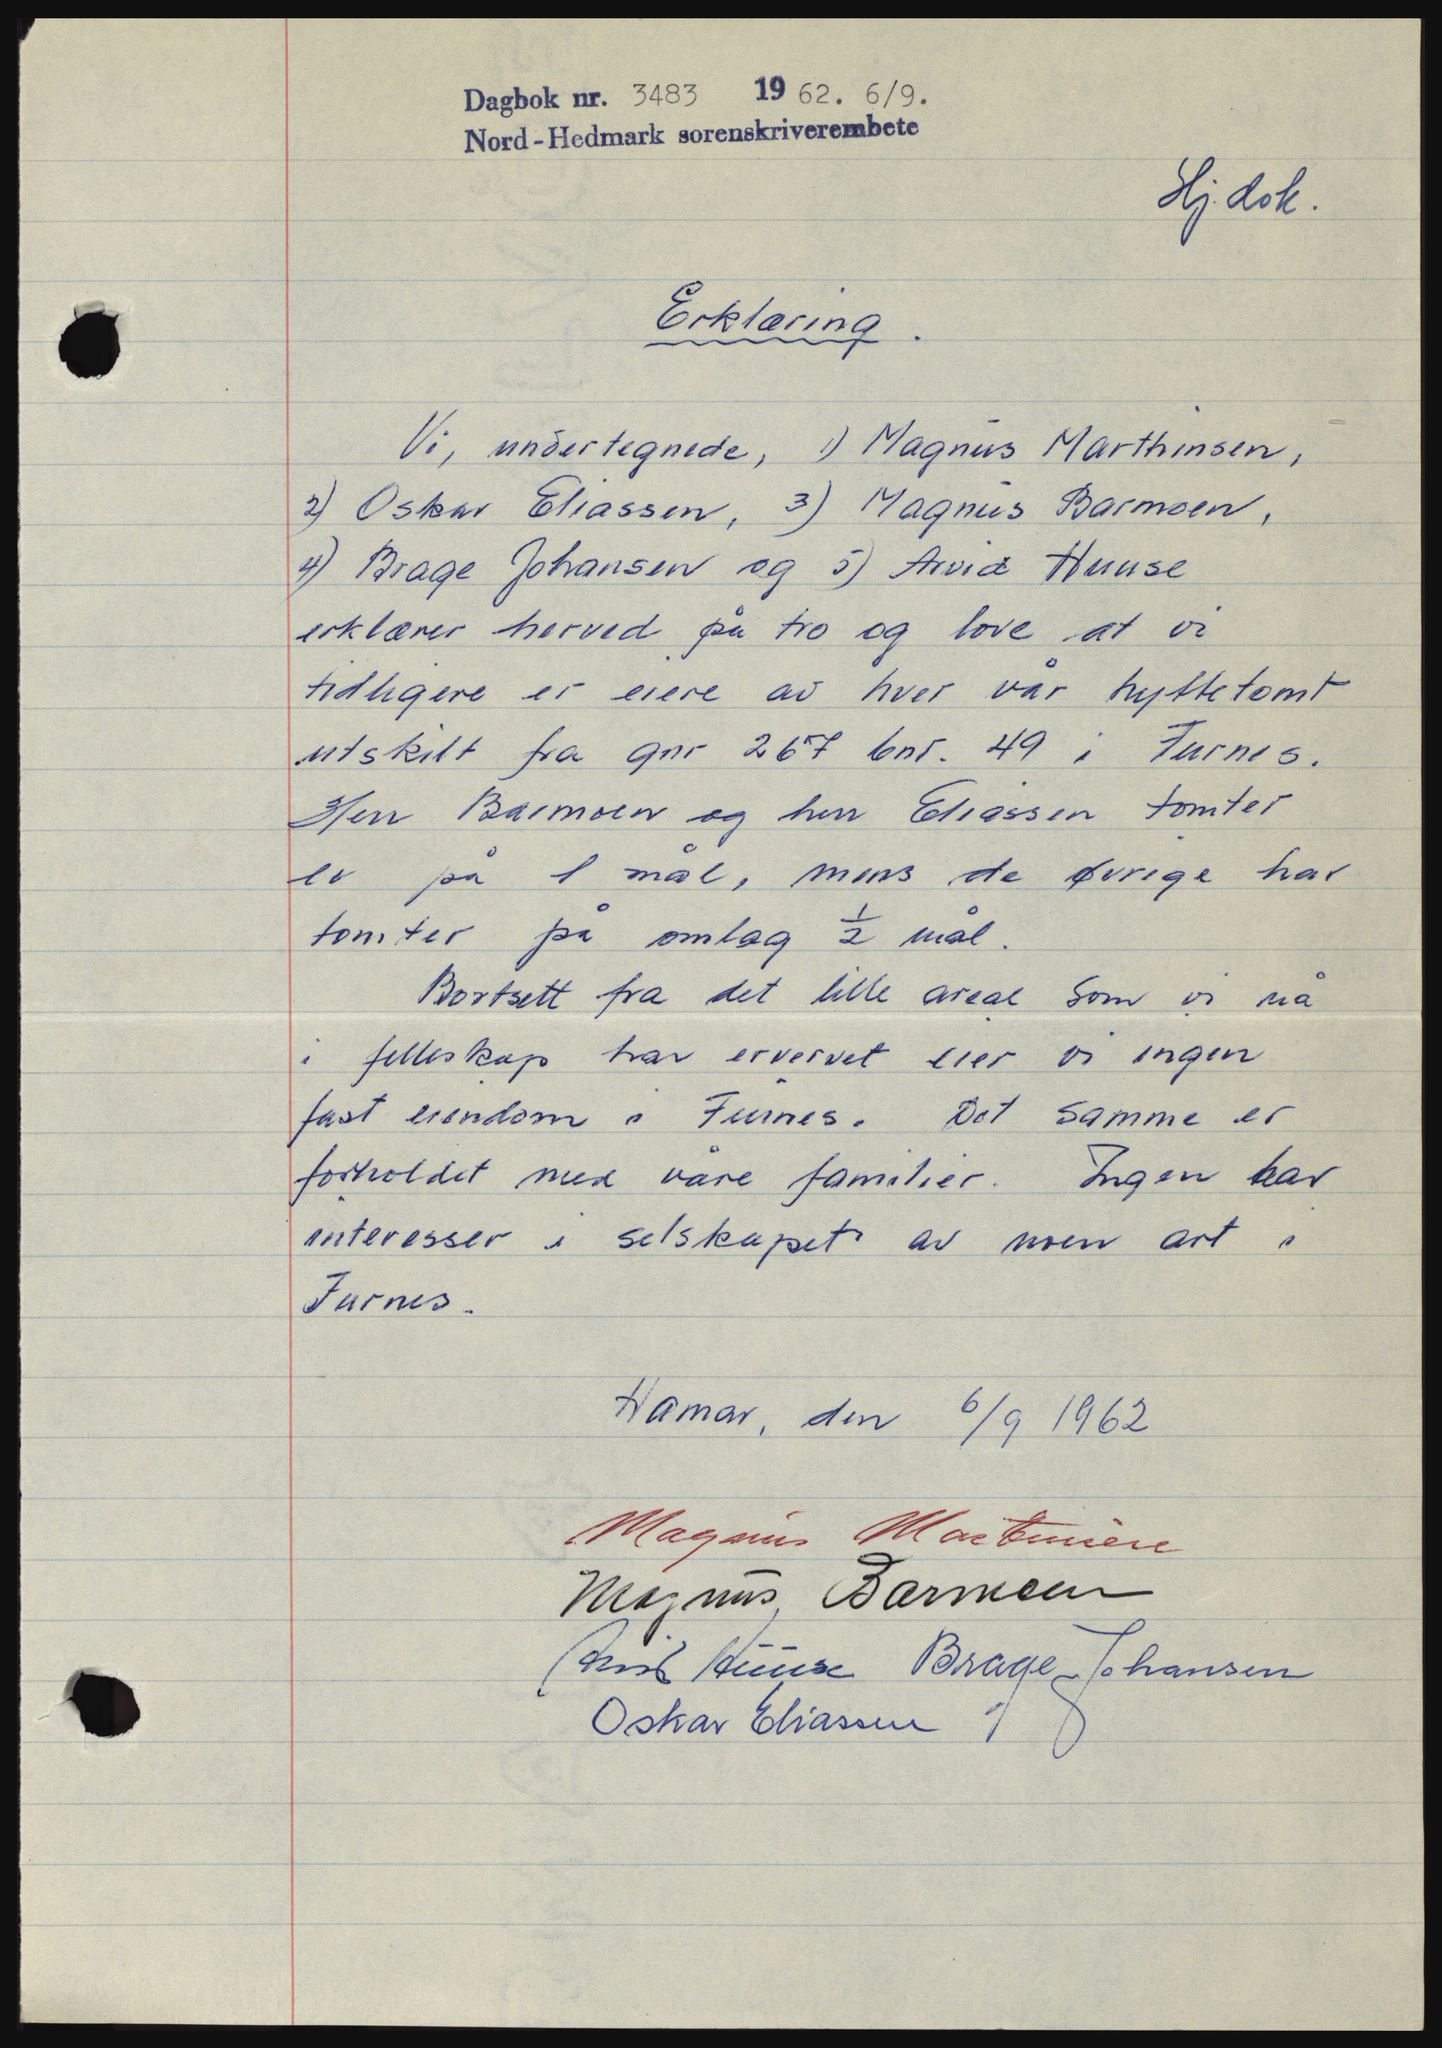 Dagbok nr. 3483 1962. 6/9.
Nord-Hedmark sorenskriverembete
Hj. dok.
Erklæring.
Vi, undertegnede, 1) Magnus Marthinsen,
2) Oskar Eliassen, 3) Magnus Barmoen,
4) Brage Johansen og 5) Arvid Huuse
erklærer herved på tro og love at vi
tidligere er eiere av hver vår hyttetomt
utskilt fra gnr 267 bnr. 49 i Furnes.
Herr Barmoen og herr Eliassen tomter
er på 1 mål, mens de øvrige har
tomter på omlag ½ mål.
Bortsett fra det lille areal som vi nå
i felleskap har ervervet eier vi ingen
fast eiendom i Furnes. Det samme er
forholdet med våre familier. Ingen har
interesser i selskapet av noen art i
Furnes.
Hamar, den 6/9 1962
Magnus
Magnus Barmoen
Arvid Huuse Brage Johansen
Oskar Eliassen